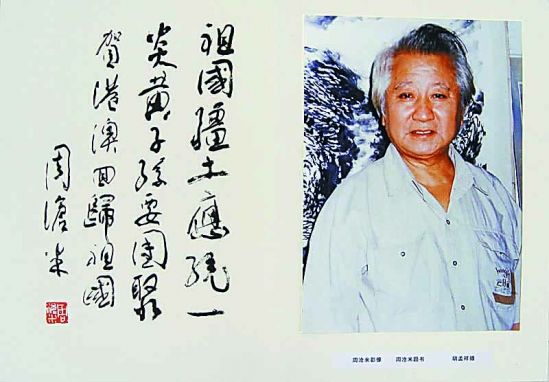 祖國疆土應統一
炎黄子孫要團聚
賀港澳回歸祖國
周滄米
周沧米影像 周沧米题书 胡孟祥摄